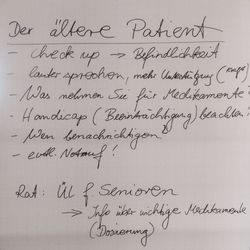 Der ältere Patient
- Check up → Befindlichkeit
- lauter sprechen, mehr Unterstützung (Kräfte)
- Was nehmen Sie für Medikamente?
- Handicap (Beeinträchtigung) beachten!
- Wen benachrichtigen?
- evtl. Notruf!
Rat: ÜL f Senioren
→ Info über wichtige Medikamente
(Dosierung)